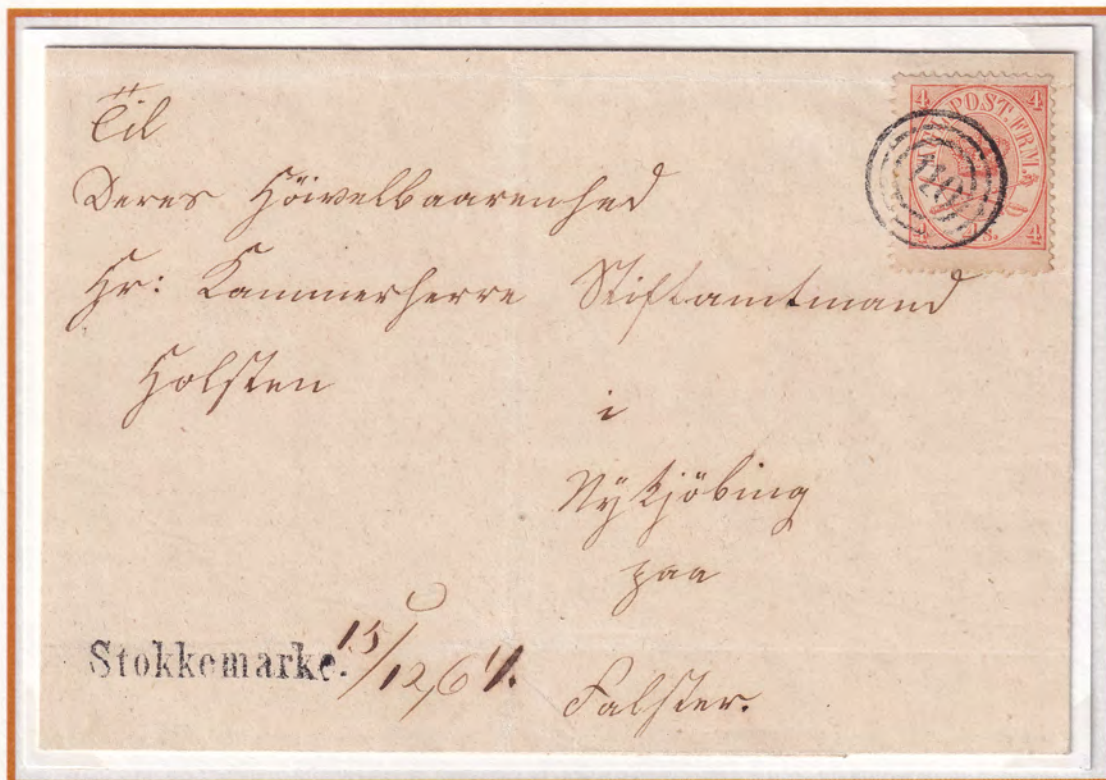 Til
Deres Höivelbaarenhed
Hr: Kammerherre Stiftamtmand
Holsten
i
Nykjöbing
paa
Falster.
Stokkemarke. 15/12,6
4 POST.FRM. 4
4 S. 4